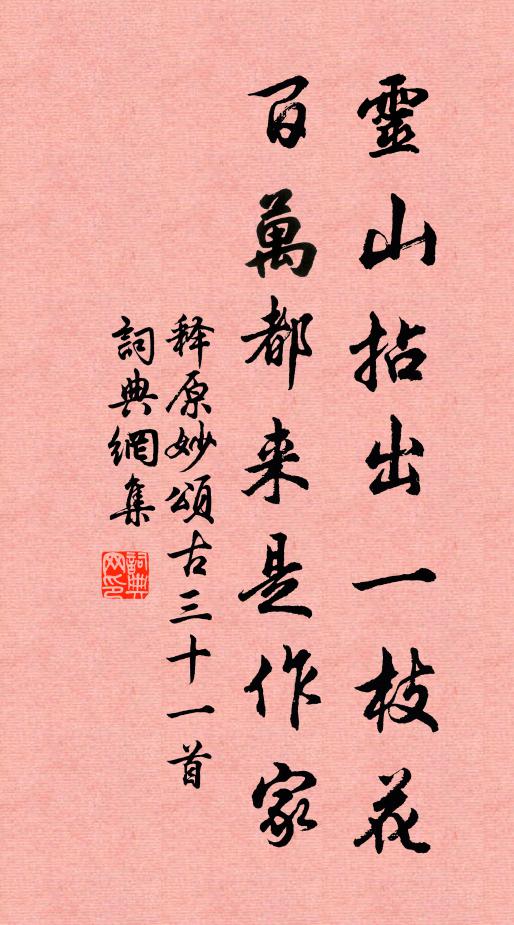 靈山拈出一枝花
百萬都来是作家
释原妙頌古三十一首
詞典網集
詞典网印